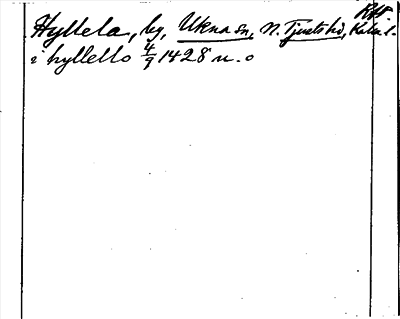 RW
Hyllela, by, Ukna sn, N. Tjusts hd, Kalm. l.
i hyllello 4/9 1428 n. o